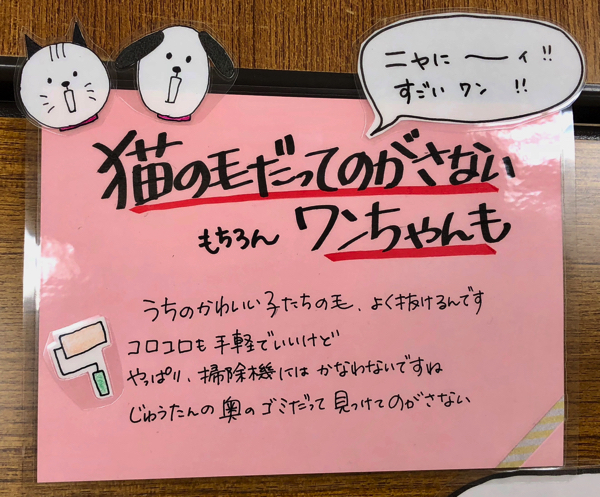 ニャに 〜イ!!
すごい ワン !!
猫の毛だってのがさない
もちろん ワンちゃんも
うちのかわいい子たちの毛、よく抜けるんです
コロコロも手軽でいいけど
やっぱり、掃除機にはかなわないですね
じゅうたんの奥のゴミだって見つけてのがさない